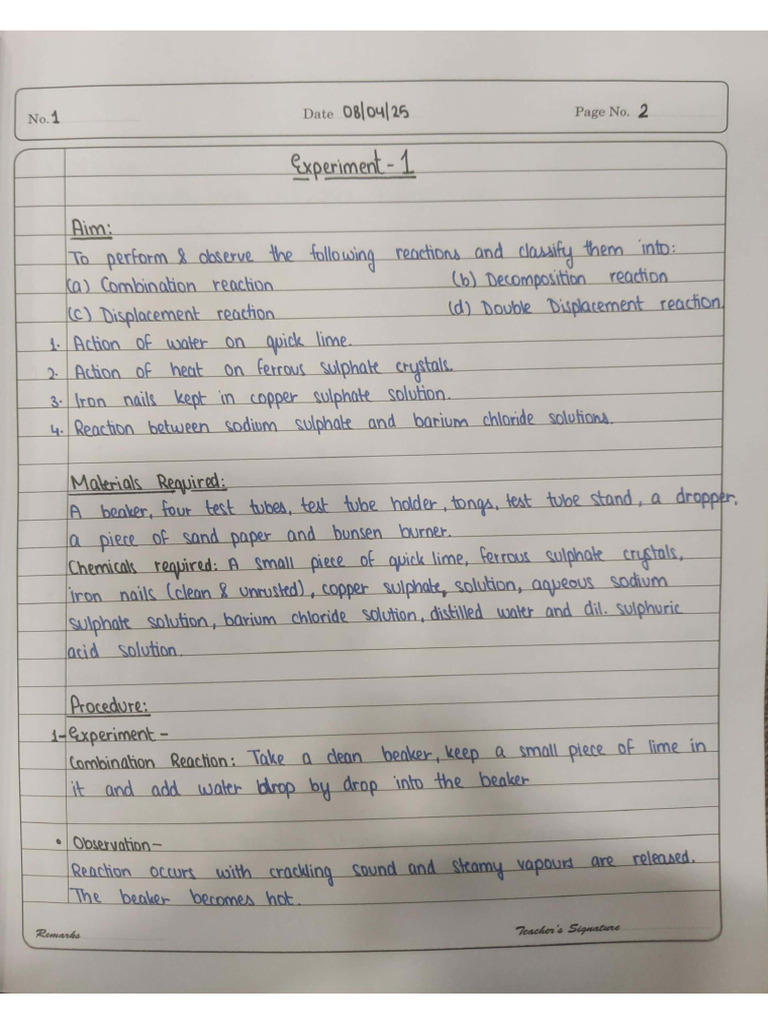 No. 1 Date 08/04/25 Page No. 2
Experiment - 1
Aim:
To perform & observe the following reactions and classify them into:
(a) Combination reaction (b) Decomposition reaction
(c) Displacement reaction (d) Double Displacement reaction
1. Action of water on quick lime.
2. Action of heat on ferrous sulphate crystals.
3. Iron nails kept in copper sulphate solution.
4. Reaction between sodium sulphate and barium chloride solutions.
Materials Required:
A beaker, four test tubes, test tube holder, tongs, test tube stand, a dropper,
a piece of sand paper and bunsen burner.
Chemicals required: A small piece of quick lime, ferrous sulphate crystals,
iron nails (clean & unrusted), copper sulphate, solution, aqueous sodium
sulphate solution, barium chloride solution, distilled water and dil. sulphuric
acid solution.
Procedure:
1- Experiment -
Combination Reaction: Take a clean beaker, keep a small piece of lime in
it and add water drop by drop into the beaker
• Observation -
Reaction occurs with crackling sound and steamy vapours are released.
The beaker becomes hot.
Remarks Teacher's Signature